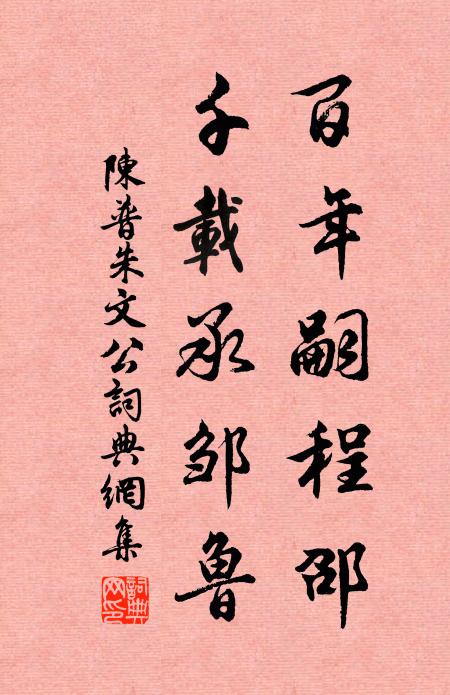 百年嗣程邵
千載承邹魯
陳普朱文公詞典網集
詞典網印